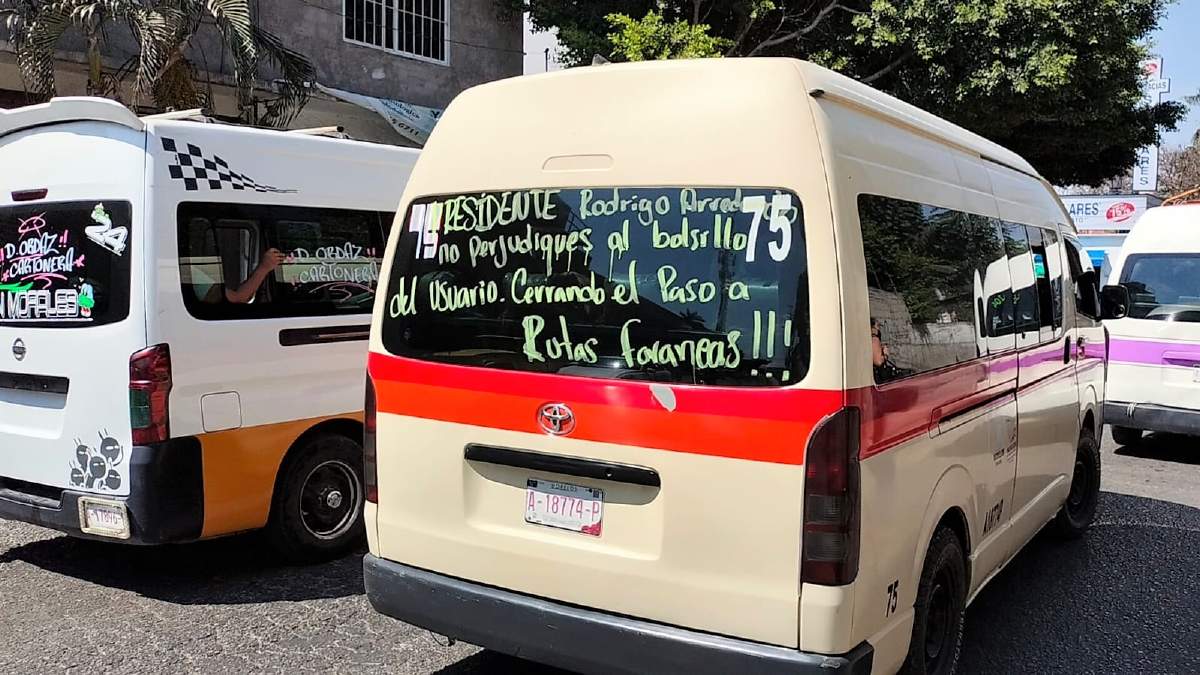 PRESIDENTE Rodrigo Arredondo
no Perjudiques al bolsillo
del Usuario. Cerrando el Paso a
Rutas foraneas!!!
75
75
A-18774-P
75
D. OBDAZ
CARTONERA
MORALES
D. OBDAZ
CARTONERA
6711
ARES